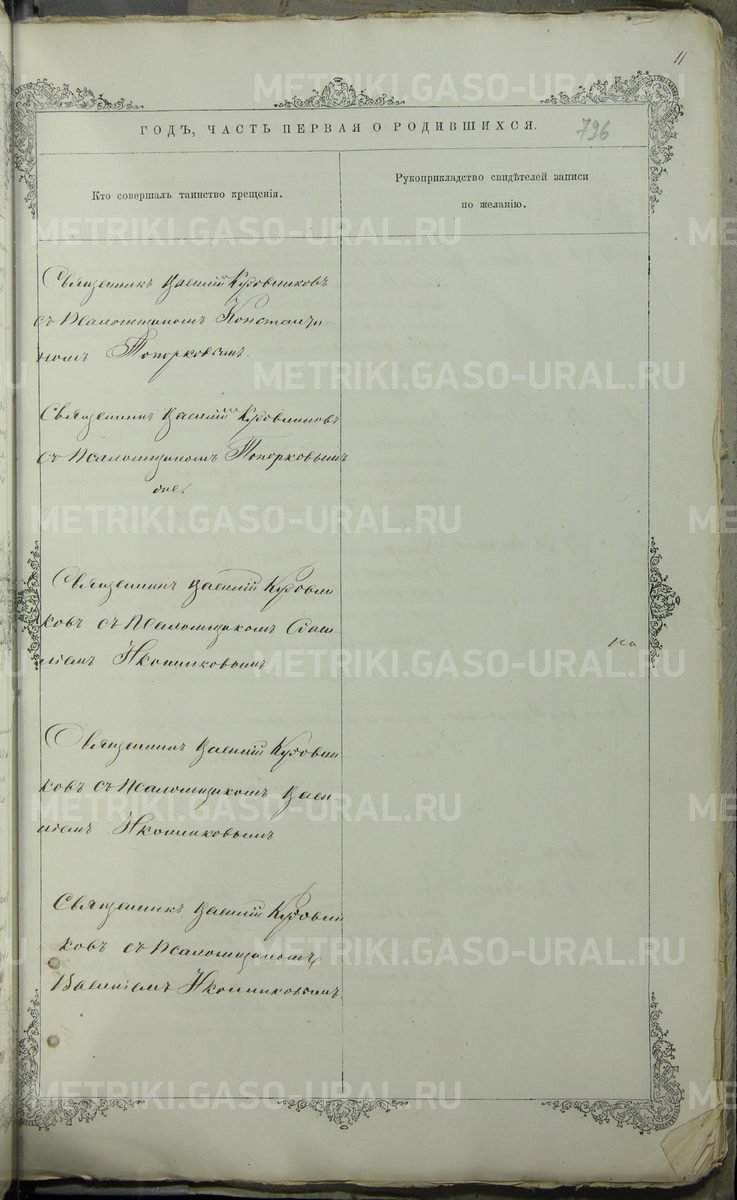 11
796
ГОДЪ, ЧАСТЬ ПЕРВАЯ О РОДИВШИХСЯ.
Кто совершалъ таинство крещенія.
Рукоприкладство свидѣтелей записи
по желанію.
Священникъ Василій Кузовниковъ
съ Псаломщикомъ Константи-
номъ Топорковымъ.
Священникъ Василій Кузовниковъ
съ Псаломщикомъ Топорковымъ
Священникъ Василій Кузовни
ковъ съ Псаломщикомъ Васи
ліемъ Иконниковымъ
Священникъ Василій Кузовни
ковъ съ Псаломщикомъ Васи
ліемъ Иконниковымъ
Священникъ Василій Кузовни
ковъ съ Псаломщикомъ
Василіемъ Иконниковымъ
METRIKI.GASO-URAL.RU